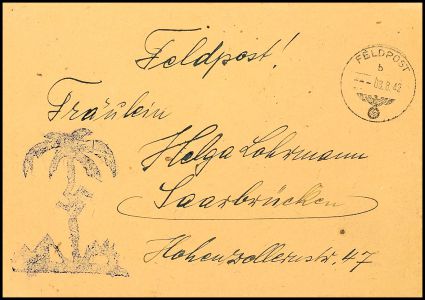 Feldpost!
FELDPOST
b
03.8.42
Fräulein
Helga Lohrmann
Saarbrücken
Hohenzollernstr. 47